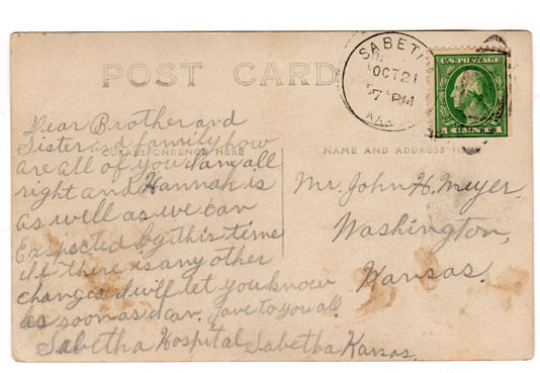 POST CARD
SABETHA
OCT 21
7 PM
KAS
U.S. POSTAGE
1 CENTS 1
CORRESPONDENCE HERE
NAME AND ADDRESS HERE
Dear Brother and
Sister and family how
are all of you I am all
right and Hannah is
as well as we can
Exspected by this time
if there is any other
changes I will let you know
as soon as I can. Love to you all.
Sabetha Hospital Sabetha Kansas.
Mr. John H. Meyer,
Washington,
Kansas.